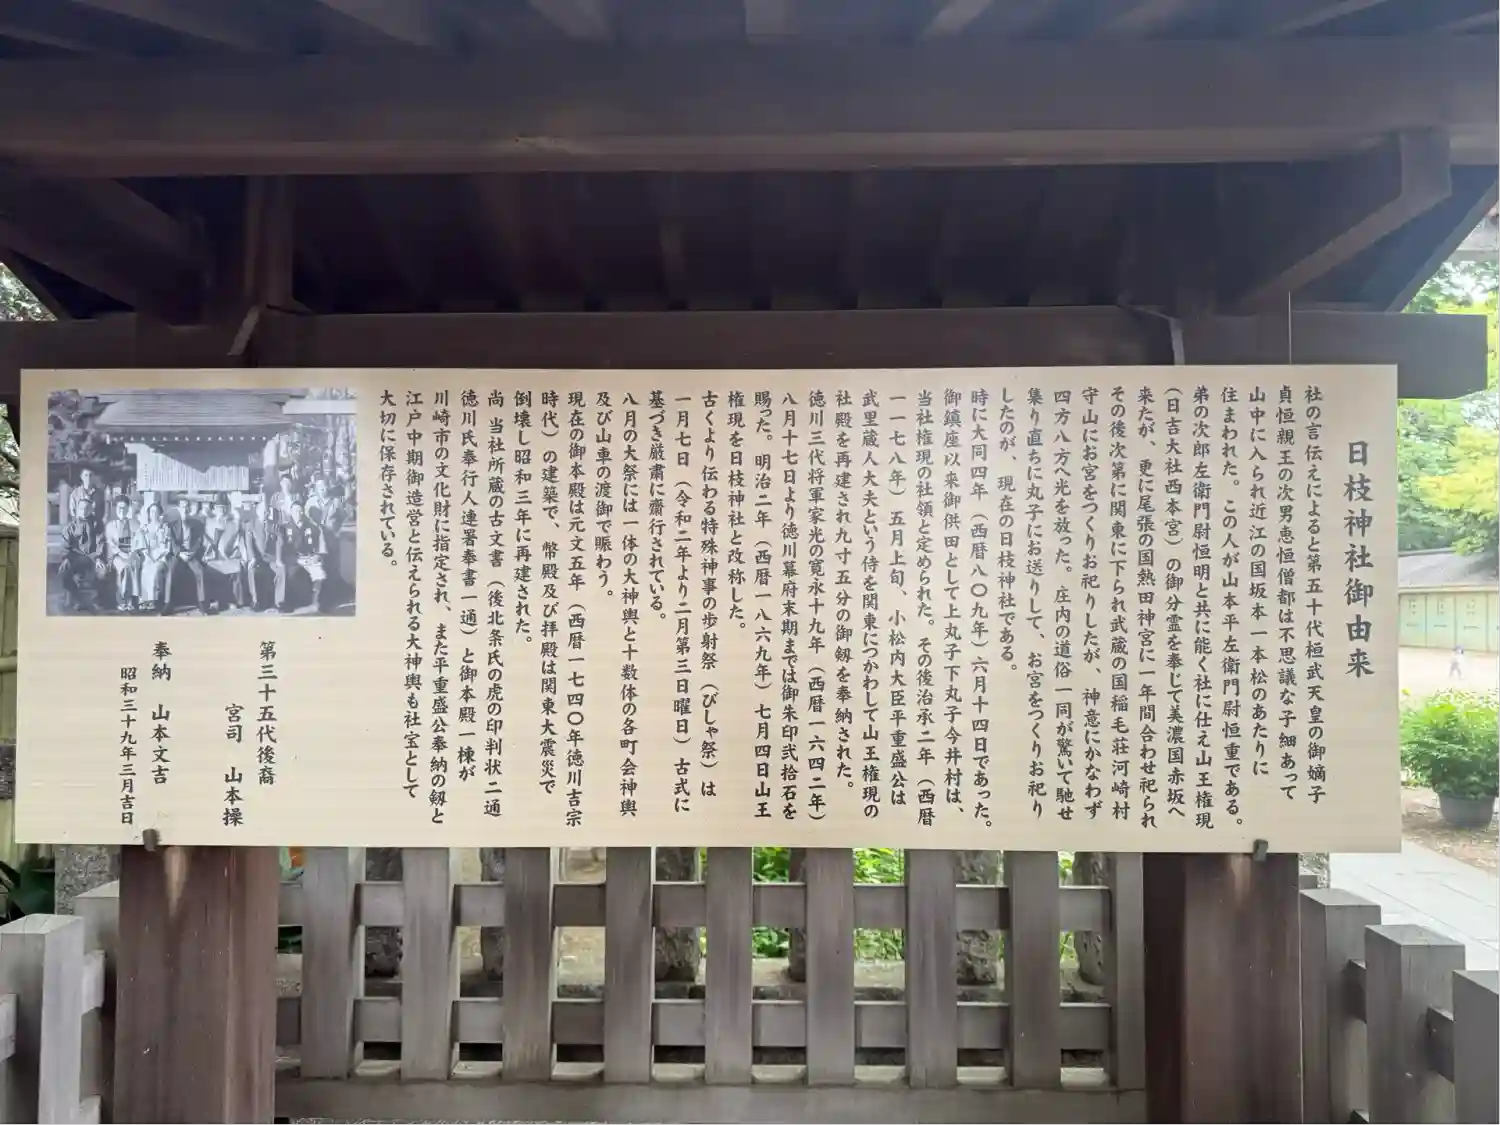 日枝神社御由来
社の言伝えによると第五十代桓武天皇の御嫡子
貞恒親王の次男恵恒僧都は不思議な子細あって
山中に入られ近江の国坂本一本松のあたりに
住まわれた。この人が山本平左衛門尉恒重である。
弟の次郎左衛門尉恒明と共に能く社に仕え山王権現
(日吉大社西本宮)の御分霊を奉じて美濃国赤坂へ
来たが、更に尾張の国熱田神宮に一年間合わせ祀られ
その後次第に関東に下られ武蔵の国稲毛荘河崎村
守山にお宮をつくりお祀りしたが、神意にかなわず
四方八方へ光を放った。庄内の道俗一同が驚いて馳せ
集り直ちに丸子にお送りして、お宮をつくりお祀り
したのが、現在の日枝神社である。
時に大同四年(西暦八〇九年)六月十四日であった。
御鎮座以来御供田として上丸子下丸子今井村は、
当社権現の社領と定められた。その後治承二年(西暦
一一七八年)五月上旬、小松内大臣平重盛公は
武里蔵人大夫という侍を関東につかわして山王権現の
社殿を再建され九寸五分の御剱を奉納された。
徳川三代将軍家光の寛永十九年(西暦一六四二年)
八月十七日より徳川幕府末期までは御朱印弐拾石を
賜った。明治二年(西暦一八六九年)七月四日山王
権現を日枝神社と改称した。
古くより伝わる特殊神事の歩射祭(びしゃ祭)は
一月七日(令和二年より二月第三日曜日)古式に
基づき厳粛に齋行されている。
八月の大祭には一体の大神輿と十数体の各町会神輿
及び山車の渡御で賑わう。
現在の御本殿は元文五年(西暦一七四〇年徳川吉宗
時代)の建築で、幣殿及び拝殿は関東大震災で
倒壊し昭和三年に再建された。
尚 当社所蔵の古文書(後北条氏の虎の印判状二通
徳川氏奉行人連署奉書一通)と御本殿一棟が
川崎市の文化財に指定され、また平重盛公奉納の剱と
江戸中期御造営と伝えられる大神輿も社宝として
大切に保存されている。
第三十五代後裔
宮司 山本操
奉納 山本文吉
昭和三十九年三月吉日